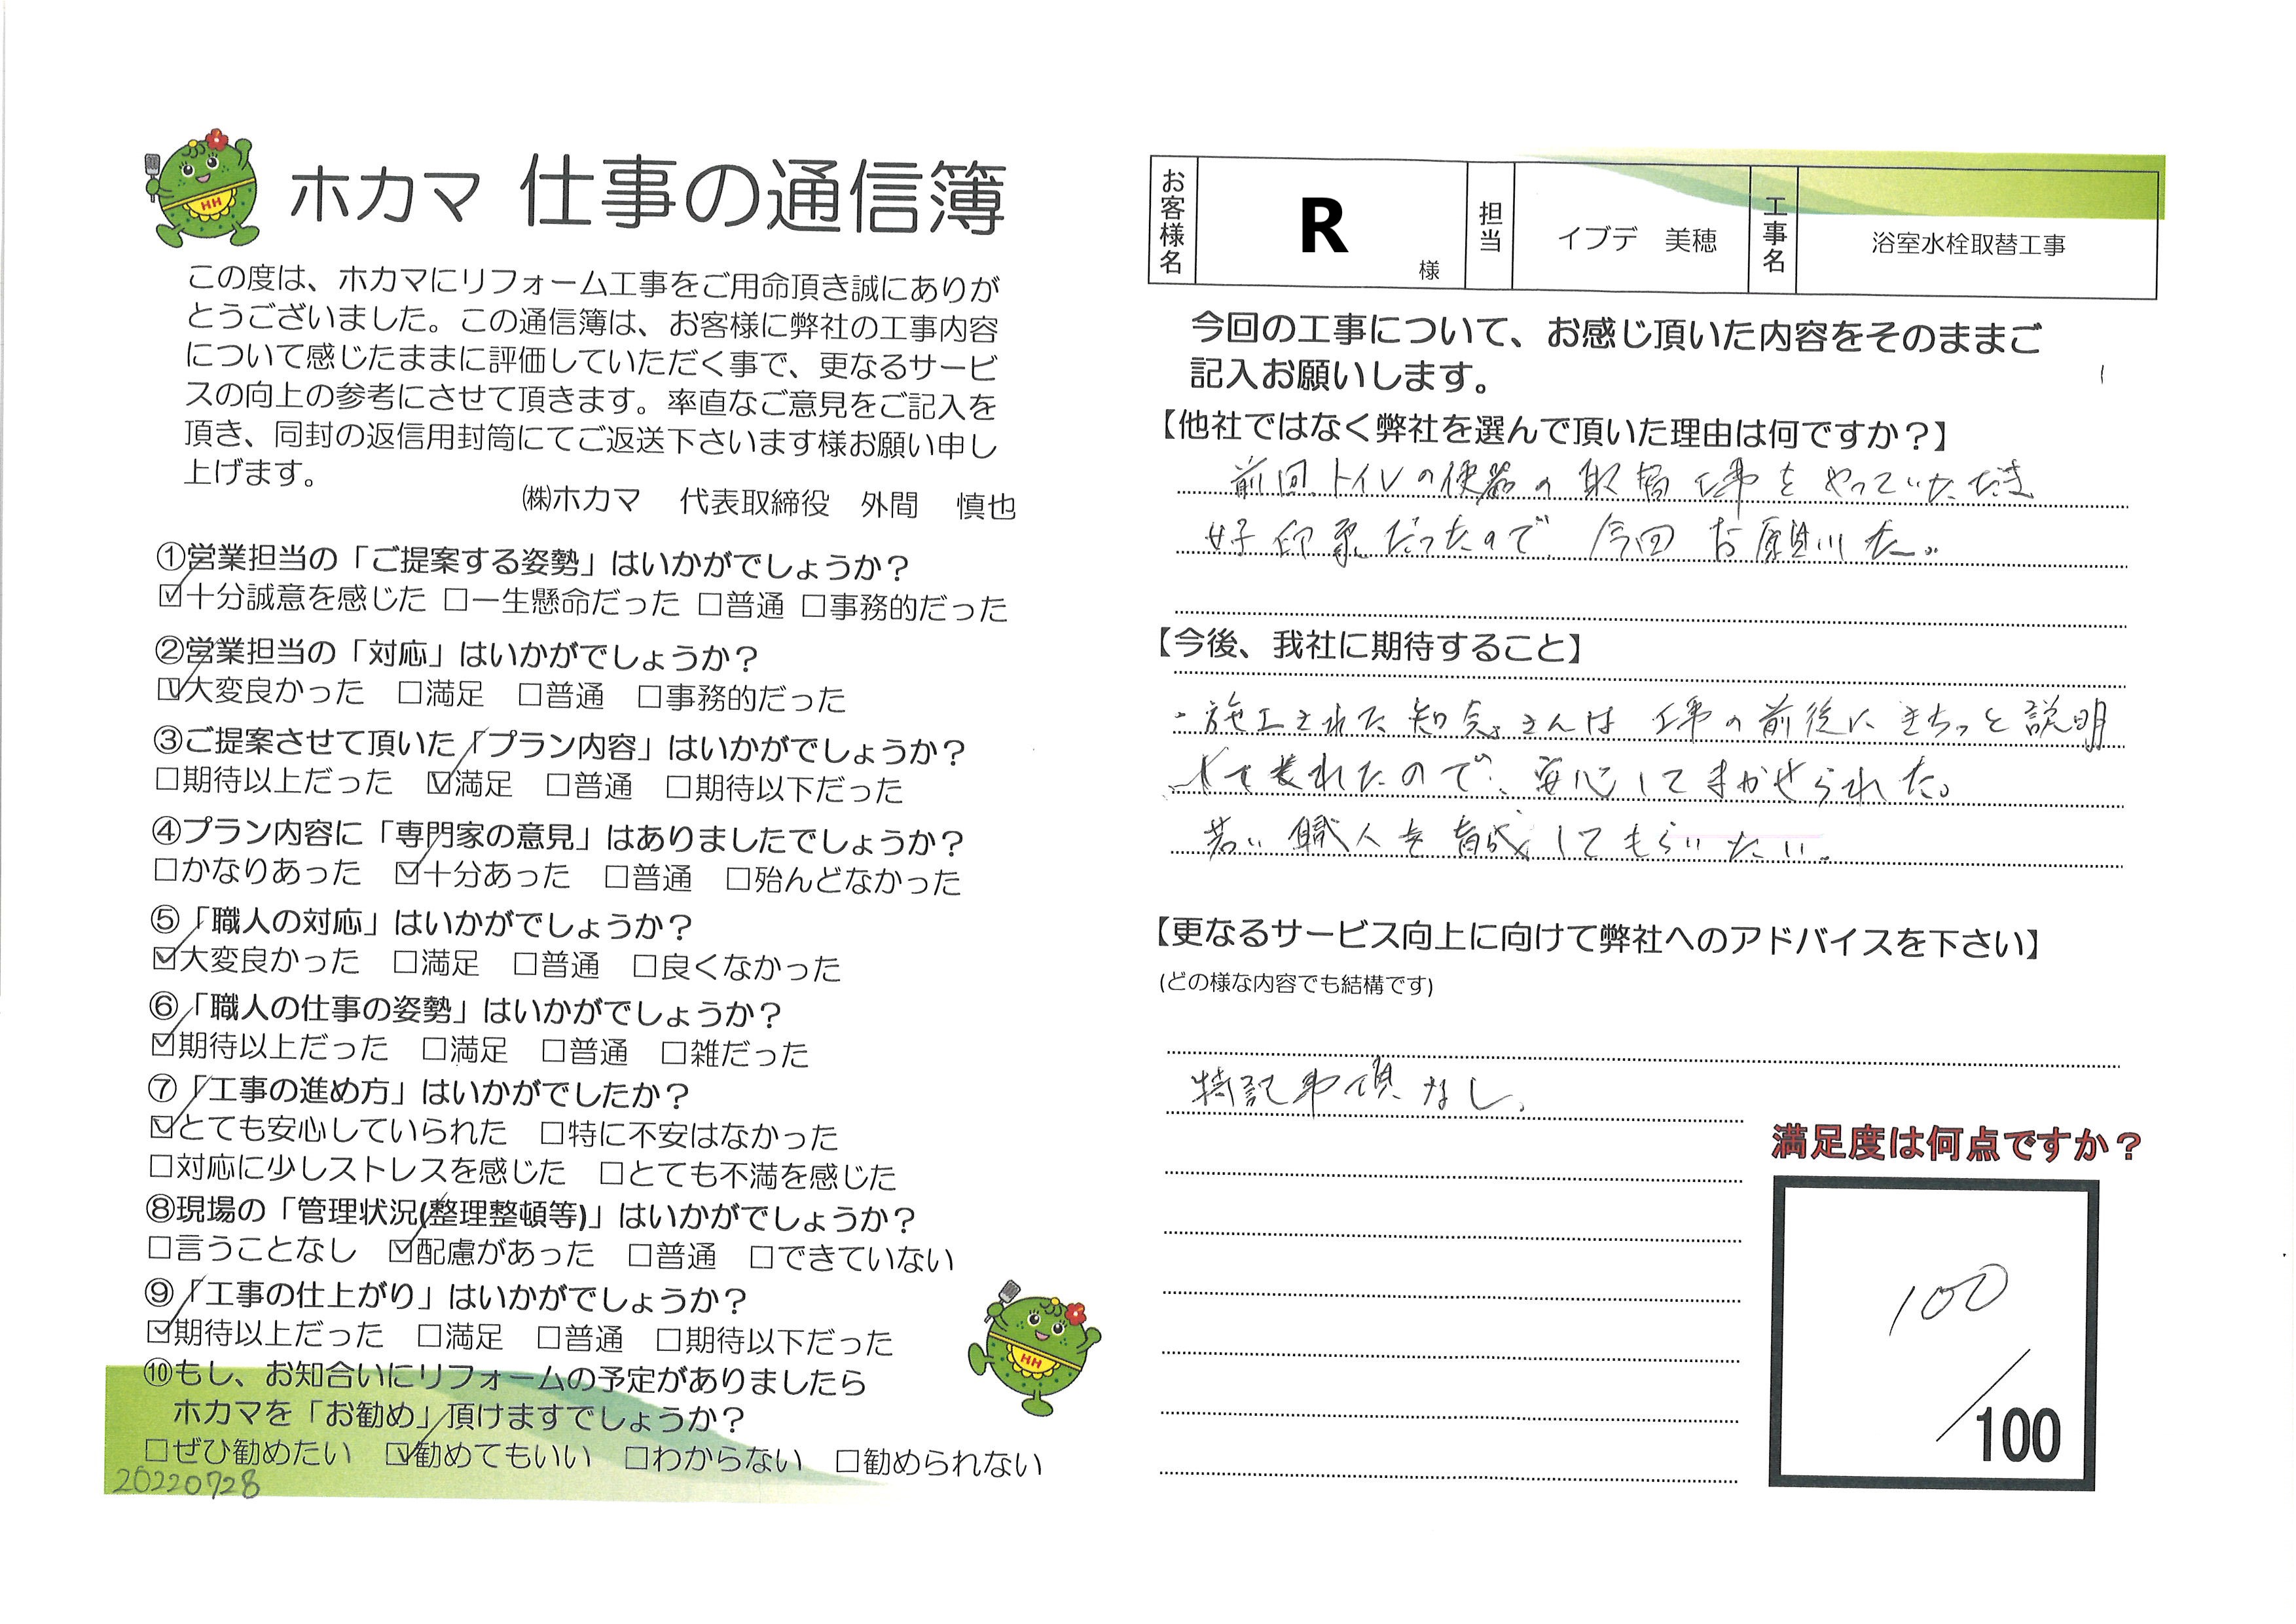 ホカマ 仕事の通信簿
この度は、ホカマにリフォーム工事をご用命頂き誠にありが
とうございました。この通信簿は、お客様に弊社の工事内容
について感じたままに評価していただく事で、更なるサービ
スの向上の参考にさせて頂きます。率直なご意見をご記入を
頂き、同封の返信用封筒にてご返送下さいます様お願い申し
上げます。
㈱ホカマ 代表取締役 外間 慎也
①営業担当の「ご提案する姿勢」はいかがでしょうか？
☑十分誠意を感じた □一生懸命だった □普通 □事務的だった
②営業担当の「対応」はいかがでしょうか？
☑大変良かった □満足 □普通 □事務的だった
③ご提案させて頂いた「プラン内容」はいかがでしょうか？
□期待以上だった ☑満足 □普通 □期待以下だった
④プラン内容に「専門家の意見」はありましたでしょうか？
□かなりあった ☑十分あった □普通 □殆んどなかった
⑤「職人の対応」はいかがでしょうか？
☑大変良かった □満足 □普通 □良くなかった
⑥「職人の仕事の姿勢」はいかがでしょうか？
☑期待以上だった □満足 □普通 □雑だった
⑦「工事の進め方」はいかがでしたか？
☑とても安心していられた □特に不安はなかった
□対応に少しストレスを感じた □とても不満を感じた
⑧現場の「管理状況(整理整頓等)」はいかがでしょうか？
□言うことなし ☑配慮があった □普通 □できていない
⑨「工事の仕上がり」はいかがでしょうか？
☑期待以上だった □満足 □普通 □期待以下だった
⑩もし、お知合いにリフォームの予定がありましたら
ホカマを「お勧め」頂けますでしょうか？
□ぜひ勧めたい ☑勧めてもいい □わからない □勧められない
20220728
お客様名 R 様 担当 イブデ 美穂 工事名 浴室水栓取替工事
今回の工事について、お感じ頂いた内容をそのままご
記入お願いします。
【他社ではなく弊社を選んで頂いた理由は何ですか？】
前回トイレの便器の取替工事をやっていただき
好印象だったので今回お願いした。
【今後、我社に期待すること】
・施工された知念さんは工事の前後にきちっと説明
してくれたので、安心してまかせられた。
若い職人を育成してもらいたい。
【更なるサービス向上に向けて弊社へのアドバイスを下さい】
(どの様な内容でも結構です)
特記事項なし。
満足度は何点ですか？
100
/100
HH
HH